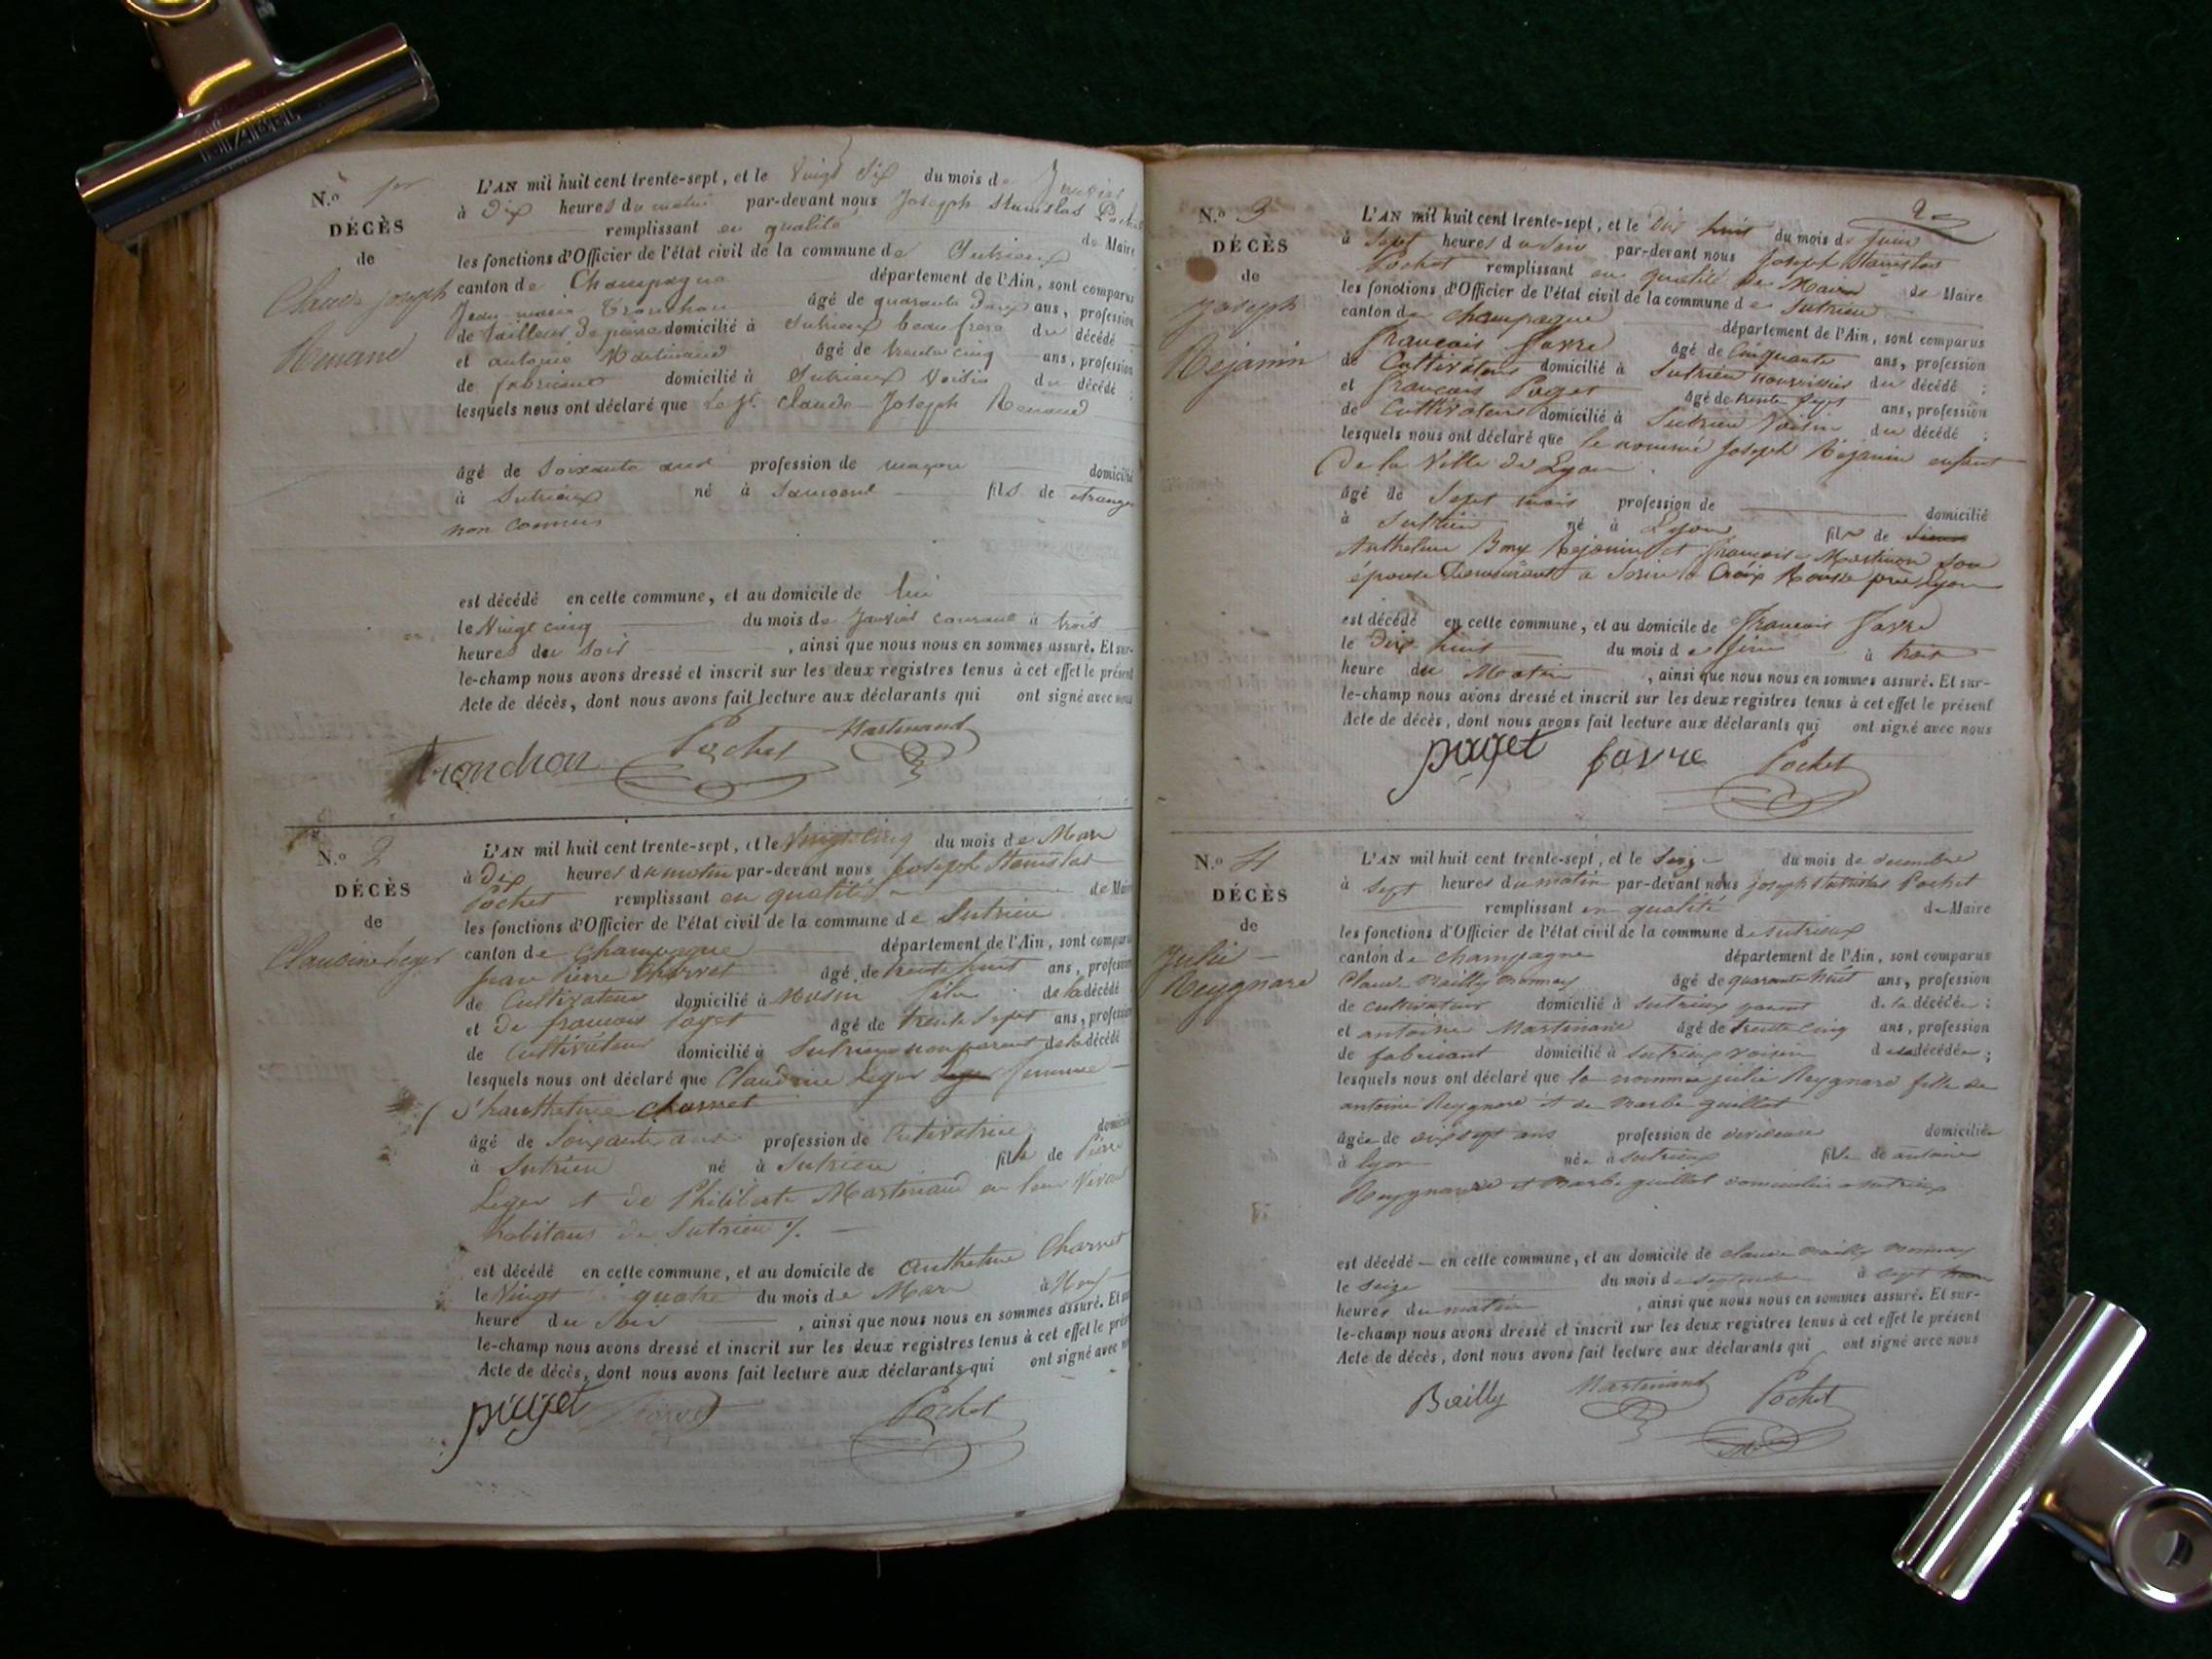 N.o 1er
DÉCÈS
de
Claude joseph
Renand
L'AN mil huit cent trente-sept, et le Vingt Six du mois de Janvier
à Dix heures du matin par-devant nous Joseph Stanislas Pochet
remplissant en qualité de Maire
les fonctions d'Officier de l'état civil de la commune de Sutrieux
canton de Champagne département de l'Ain, sont comparus
Jean marie Tronchon âgé de quarante Deux ans, profession
de tailleur de pierre domicilié à Sutrieux beau frere du décédé
et antoine Martinand âgé de trente cinq ans, profession
de fabricant domicilié à Sutrieux Voisin du décédé ;
lesquels nous ont déclaré que le st. Claude Joseph Renand
âgé de Soixante ans profession de maçon domicilié
à Sutrieux né à Samoens fils de etranger
non connus
est décédé en cette commune, et au domicile de lui
le Vingt cinq du mois de Janvier courant à trois
heures du Soir , ainsi que nous nous en sommes assuré. Et sur-
le-champ nous avons dressé et inscrit sur les deux registres tenus à cet effet le présent
Acte de décès, dont nous avons fait lecture aux déclarants qui ont signé avec nous
Tronchon Pochet Martinand
N.o 2
DÉCÈS
de
Claudine Leger
L'AN mil huit cent trente-sept, et le Vingt cinq du mois de Mars
à Dix heures du matin par-devant nous Joseph Stanislas
Pochet remplissant en qualité de Maire
les fonctions d'Officier de l'état civil de la commune de Sutrieu
canton de Champagne département de l'Ain, sont comparus
Jean Pierre Charvet âgé de trente huit ans, profession
de Cultivateur domicilié à Musin fils de la décédé
et De francois Paget âgé de trente Sept ans, profession
de Cultivateur domicilié à Sutrieu non parent de la décédé
lesquels nous ont déclaré que Claudine Leger femme
d'hanthelme Charvet
âgé de Soixante ans profession de Cultivatrice domicilié
à Sutrieu né à Sutrieu fille de Pierre
Leger et de Philiberte Martinand en leur Vivant
habitans de Sutrieu %.
est décédé en cette commune, et au domicile de Anthelme Charvet
le Vingt quatre du mois de Mars à Neuf
heure du Soir , ainsi que nous nous en sommes assuré. Et sur
le-champ nous avons dressé et inscrit sur les deux registres tenus à cet effet le prés
Acte de décès, dont nous avons fait lecture aux déclarants qui ont signé avec n
paget Charvet Pochet
2
N.o 3
DÉCÈS
de
Joseph
Rejanin
L'AN mil huit cent trente-sept, et le Dix huit du mois de Juin
à Sept heures du Soir par-devant nous Joseph Stanislas
Pochet remplissant en qualité de Maire de Maire
les fonctions d'Officier de l'état civil de la commune de Sutrieu
canton de Champagne département de l'Ain, sont comparus
francois favre âgé de Cinquante ans, profession
de Cultivateur domicilié à Sutrieu nourrissier du décédé ;
et francois Paget âgé de trente Sept ans, profession
de Cultivateur domicilié à Sutrieu Voisin du décédé ;
lesquels nous ont déclaré que le nommé Joseph Rejanin enfant
de la Ville de Lyon
âgé de Sept mois profession de domicilié
à Sutrieu né à Lyon fils de
Anthelme Rejanin et francoise Martinon Son
épouse Demeurant a Croix Rousse près Lyon
est décédé en cette commune, et au domicile de francois favre
le Dix huit du mois de Juin à trois
heure du Matin , ainsi que nous nous en sommes assuré. Et sur-
le-champ nous avons dressé et inscrit sur les deux registres tenus à cet effet le présent
Acte de décès, dont nous avons fait lecture aux déclarants qui ont signé avec nous
paget favre Pochet
N.o 4
DÉCÈS
de
Julie
Reygnard
L'AN mil huit cent trente-sept, et le Seize du mois de decembre
à Sept heures du matin par-devant nous joseph Stanislas Pochet
remplissant en qualité de Maire
les fonctions d'Officier de l'état civil de la commune de Sutrieux
canton de champagne département de l'Ain, sont comparus
Claude Bailly âgé de quarante huit ans, profession
de cultivateur domicilié à Sutrieux parent de la décédée ;
et antoine Martinand âgé de trente cinq ans, profession
de fabricant domicilié à Sutrieux voisin de la décédée ;
lesquels nous ont déclaré que la nommée julie Reygnard fille de
antoine Reygnard et de Barbe guillot
âgée de dix sept ans profession de devideuse domiciliée
à lyon née à Sutrieux fille de antoine
Reygnard et Barbe guillot domiciliés a Sutrieux
est décédé en cette commune, et au domicile de claude Bailly
le Seize du mois de Septembre à Sept
heures du matin , ainsi que nous nous en sommes assuré. Et sur-
le-champ nous avons dressé et inscrit sur les deux registres tenus à cet effet le présent
Acte de décès, dont nous avons fait lecture aux déclarants qui ont signé avec nous
Bailly Martinand Pochet